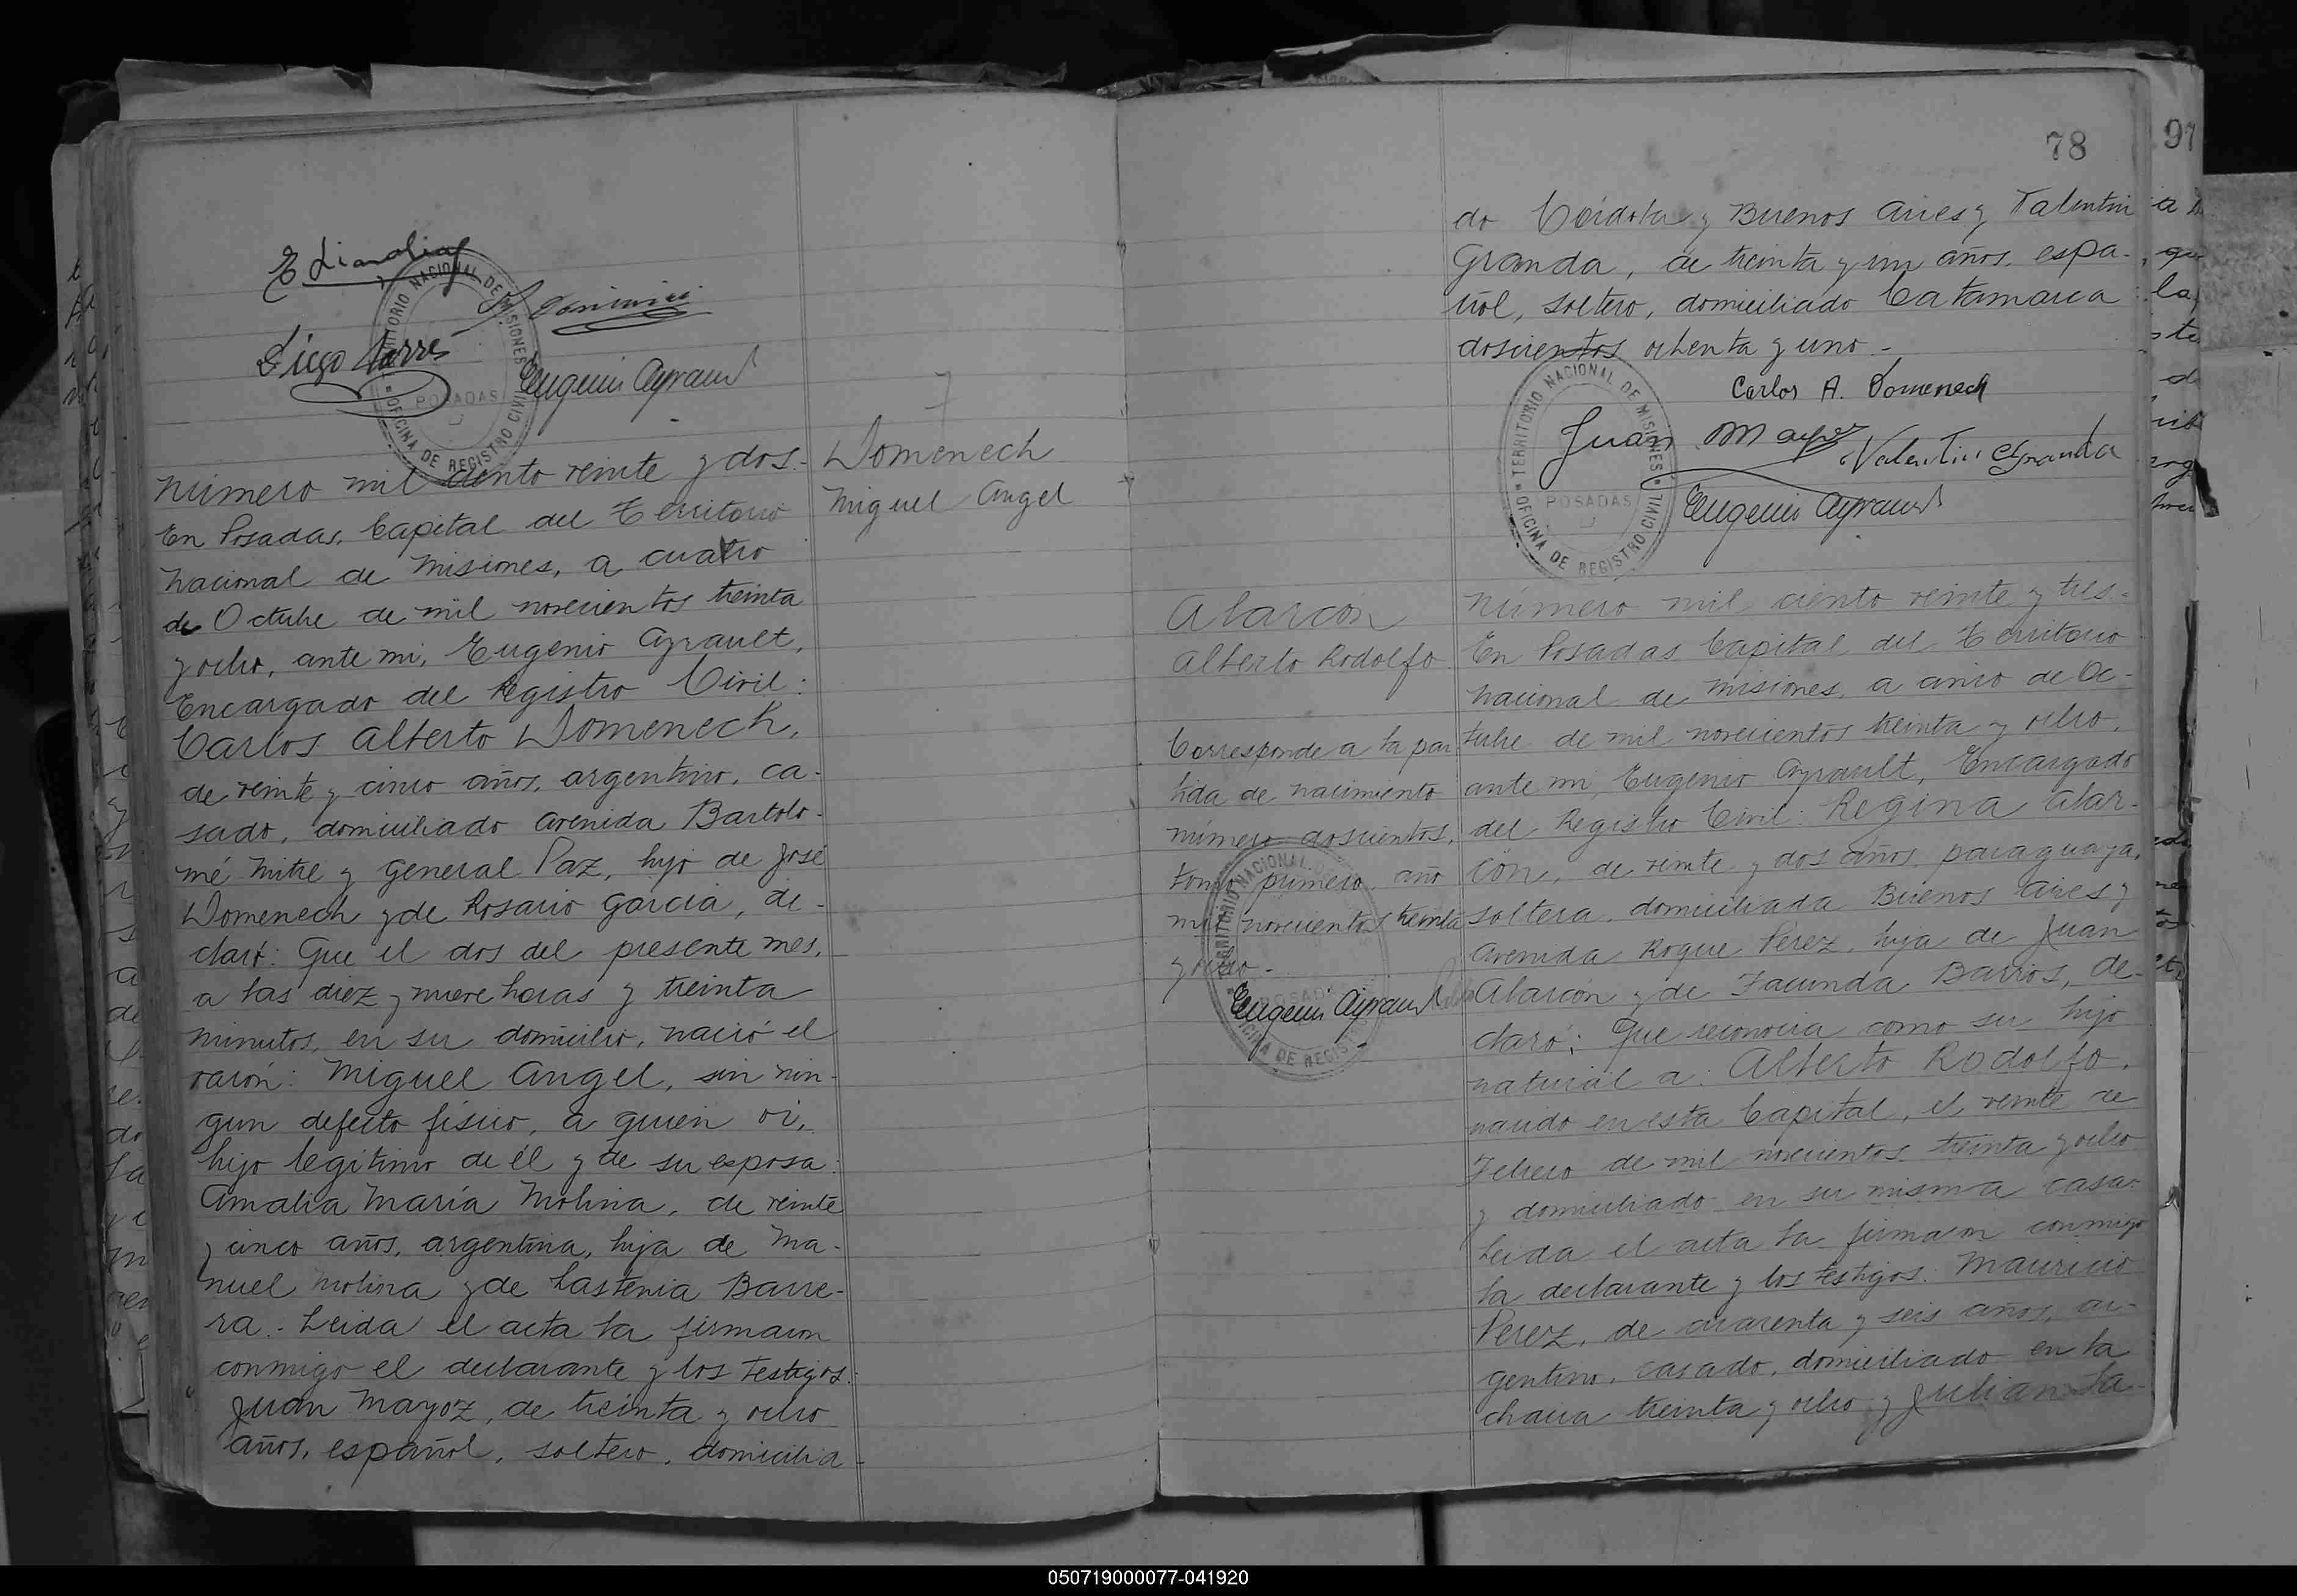 E Limalia
Diego Torres
Eugenio Ayrault
TERRITORIO NACIONAL DE MISIONES
POSADAS
OFICINA DE REGISTRO CIVIL
Domenech
Miguel Angel
Número mil ciento veinte y dos.-
En Posadas, Capital del Territorio
Nacional de Misiones, a cuatro
de Octubre de mil novecientos treinta
y ocho, ante mi, Eugenio Ayrault,
Encargado del Registro Civil:
Carlos Alberto Domenech,
de veinte y cinco años, argentino, ca-
sado, domiciliado Avenida Bartolo-
mé Mitre y General Paz, hijo de José
Domenech y de Rosario García, de-
claró: Que el dos del presente mes,
a las diez y nueve horas y treinta
minutos, en su domicilio, nació el
varón: Miguel Angel, sin nin-
gun defecto físico, a quien vi,
hijo legitimo de él y de su esposa:
Amalia María Molina, de veinte
y cinco años, argentina, hija de Ma-
nuel Molina y de Lastenia Barre-
ra.- Leida el acta la firmaron
conmigo el declarante y los testigos:
Juan Mayoz, de treinta y ocho
años, español, soltero, domicilia-
78
97
do Córdoba y Buenos Aires y Valentin
Granda, de treinta y un años, espa-
ñol, soltero, domiciliado Catamarca
doscientos ochenta y uno.-
Carlos A. Domenech
Juan Mayoz
Valentin Granda
Eugenio Ayrault
TERRITORIO NACIONAL DE MISIONES
POSADAS
OFICINA DE REGISTRO CIVIL
Alarcón
Alberto Rodolfo
Corresponde a la par-
tida de nacimiento
número doscientos,
tomo primero, año
mil novecientos treinta
y ocho.-
Eugenio Ayrault
TERRITORIO NACIONAL
POSADAS
OFICINA DE REGISTRO
Número mil ciento veinte y tres.-
En Posadas Capital del Territorio
Nacional de Misiones, a cinco de Oc-
tubre de mil novecientos treinta y ocho,
ante mi, Eugenio Ayrault, Encargado
del Registro Civil: Regina Alar-
cón, de veinte y dos años, paraguaya,
soltera, domiciliada Buenos Aires y
Avenida Roque Perez, hija de Juan
Alarcón y de Facunda Barrios, de-
claró: Que reconocia como su hijo
natural a: Alberto Rodolfo,
nacido en esta Capital, el veinte de
Febrero de mil novecientos treinta y ocho
y domiciliado en su misma casa.-
Leida el acta la firmaron conmigo
la declarante y los testigos: Mauricio
Perez, de cuarenta y seis años, ar-
gentino, casado, domiciliado en la
chacra treinta y ocho y Julian La-
050719000077-041920